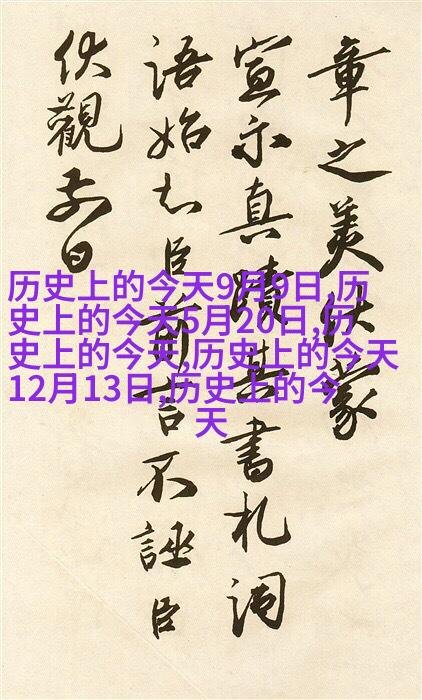 章之美伏蒙
宣示真蹟書札詞
語始知臣前言不誣臣
伏觀前日
历史上的今天9月9日,历
史上的今天5月20日,历
史上的今天,历史上的今天
12月13日,历史上的今
天